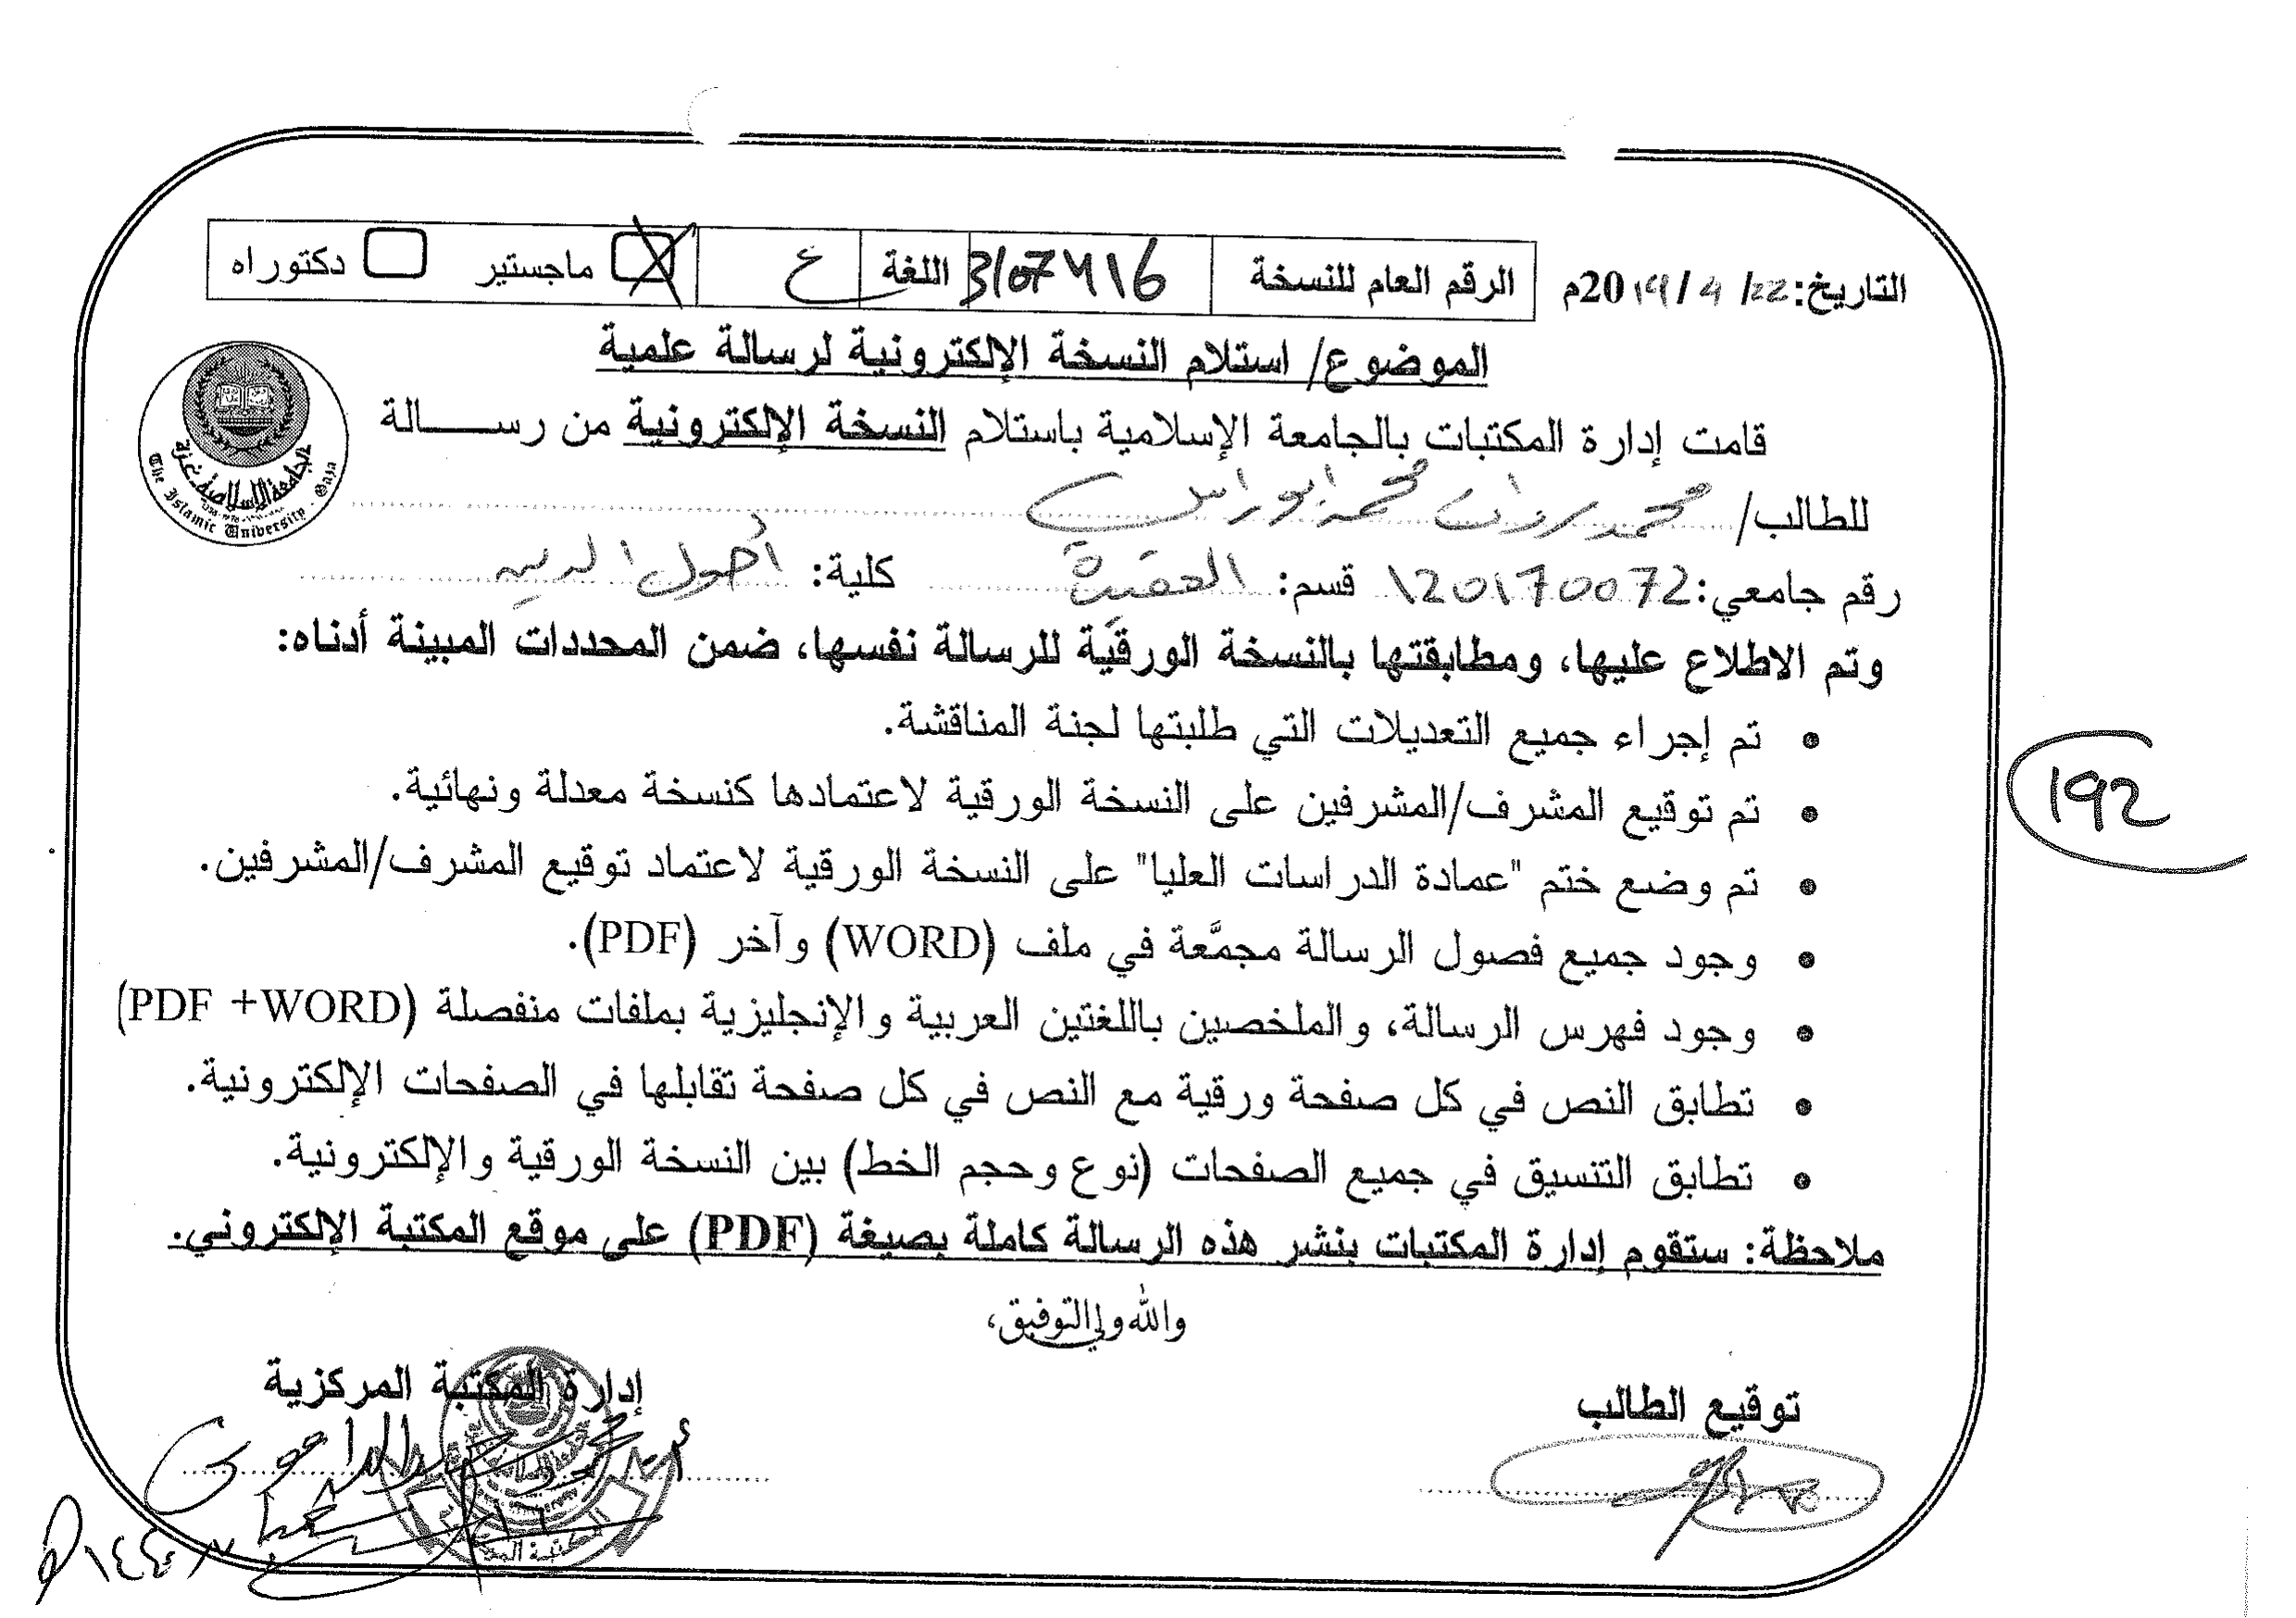 التاريخ: 22/ 4 /2019م
الرقم العام للنسخة 3107416 اللغة ع ماجستير دكتوراه
الموضوع/ استلام النسخة الإلكترونية لرسالة علمية
قامت إدارة المكتبات بالجامعة الإسلامية باستلام النسخة الإلكترونية من رســـالة
للطالب/ محمد مروان محمد ابو راس
رقم جامعي: 120170072 قسم: العقيدة كلية: أصول الدين
وتم الاطلاع عليها، ومطابقتها بالنسخة الورقية للرسالة نفسها، ضمن المحددات المبينة أدناه:
• تم إجراء جميع التعديلات التي طلبتها لجنة المناقشة.
• تم توقيع المشرف/المشرفين على النسخة الورقية لاعتمادها كنسخة معدلة ونهائية.
• تم وضع ختم "عمادة الدراسات العليا" على النسخة الورقية لاعتماد توقيع المشرف/المشرفين.
• وجود جميع فصول الرسالة مجمَّعة في ملف (WORD) وآخر (PDF).
• وجود فهرس الرسالة، والملخصين باللغتين العربية والإنجليزية بملفات منفصلة (PDF +WORD)
• تطابق النص في كل صفحة ورقية مع النص في كل صفحة تقابلها في الصفحات الإلكترونية.
• تطابق التنسيق في جميع الصفحات (نوع وحجم الخط) بين النسخة الورقية والإلكترونية.
ملاحظة: ستقوم إدارة المكتبات بنشر هذه الرسالة كاملة بصيغة (PDF) على موقع المكتبة الإلكتروني.
والله ولي التوفيق،
توقيع الطالب
إدارة المكتبة المركزية
192
الجامعة الإسلامية غزة
The Islamic University Gaza